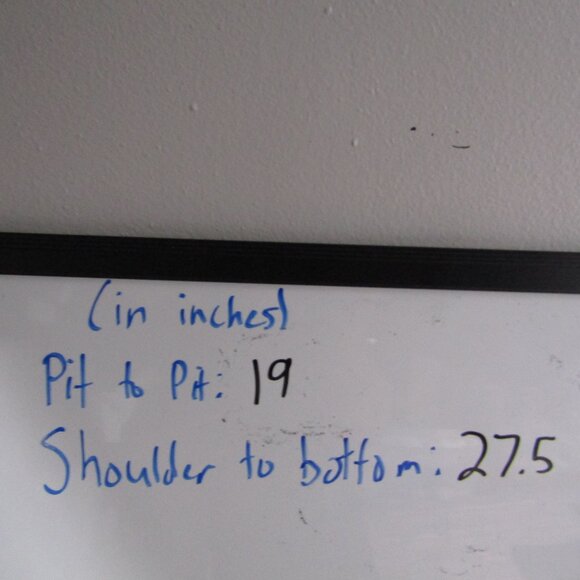 (in inches)
Pit to Pit: 19
Shoulder to bottom: 27.5